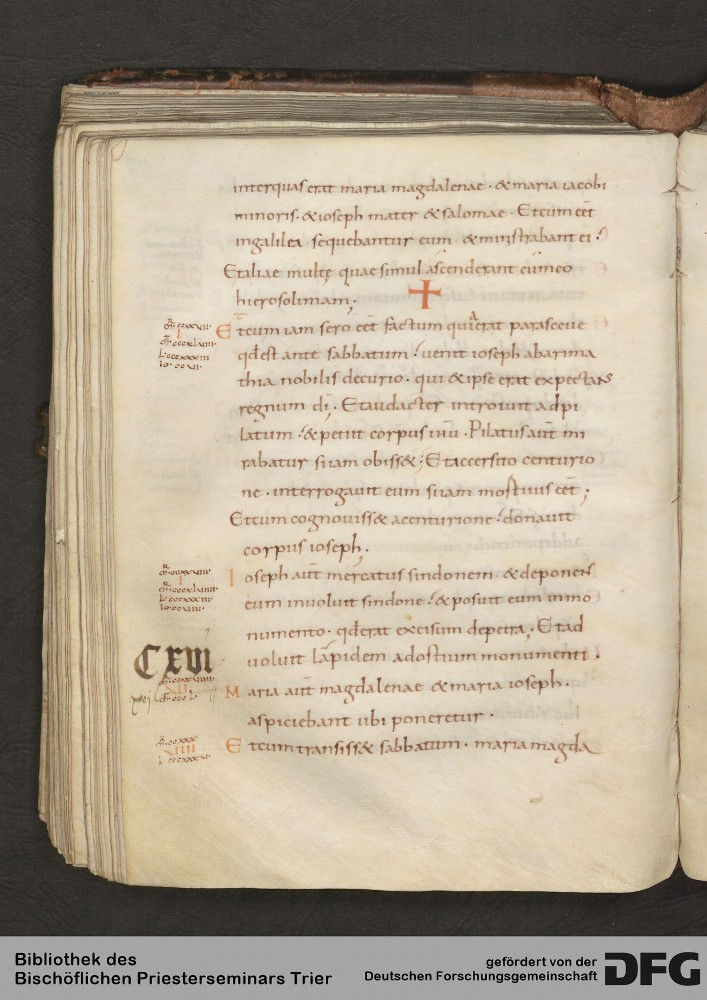 interquas erat maria magdalenae · & maria iacobi
minoris · & ioseph mater & salomae · Et cum eēt
ingalilea sequebantur eum & ministrabant ei ·
Et aliae multę quae simul ascenderant cūmeo
hierosolimam ;
Et cum iam sero eēt factum quia erat parasceue
qđest ante sabbatum / uenit ioseph abarima
thia nobilis decurio · qui & ipse erat expectans
regnum dī ; Et audacter introiuit adpi
latum / & petiit corpus ihū · Pilatus aūt mi
rabatur si iam obiss& ; Et accersito centurio
ne · interrogauit eum si iam mortuus eēt ;
Et cum cognouiss& acenturione / donauit
corpus ioseph ·
Ioseph aūt mercatus sindonem · & deponens
eum inuoluit sindone / & posuit eum inmo
numento · qđerat excisum depetra ; Et ad
uoluit lapidem adostium monumenti ·
CXVI
xvi
Maria aūt magdalenae & maria ioseph ·
aspiciebant ubi poneretur ·
Et cum transiss& sabbatum · maria magda
Bibliothek des
Bischöflichen Priesterseminars Trier
gefördert von der
Deutschen Forschungsgemeinschaft
DFG